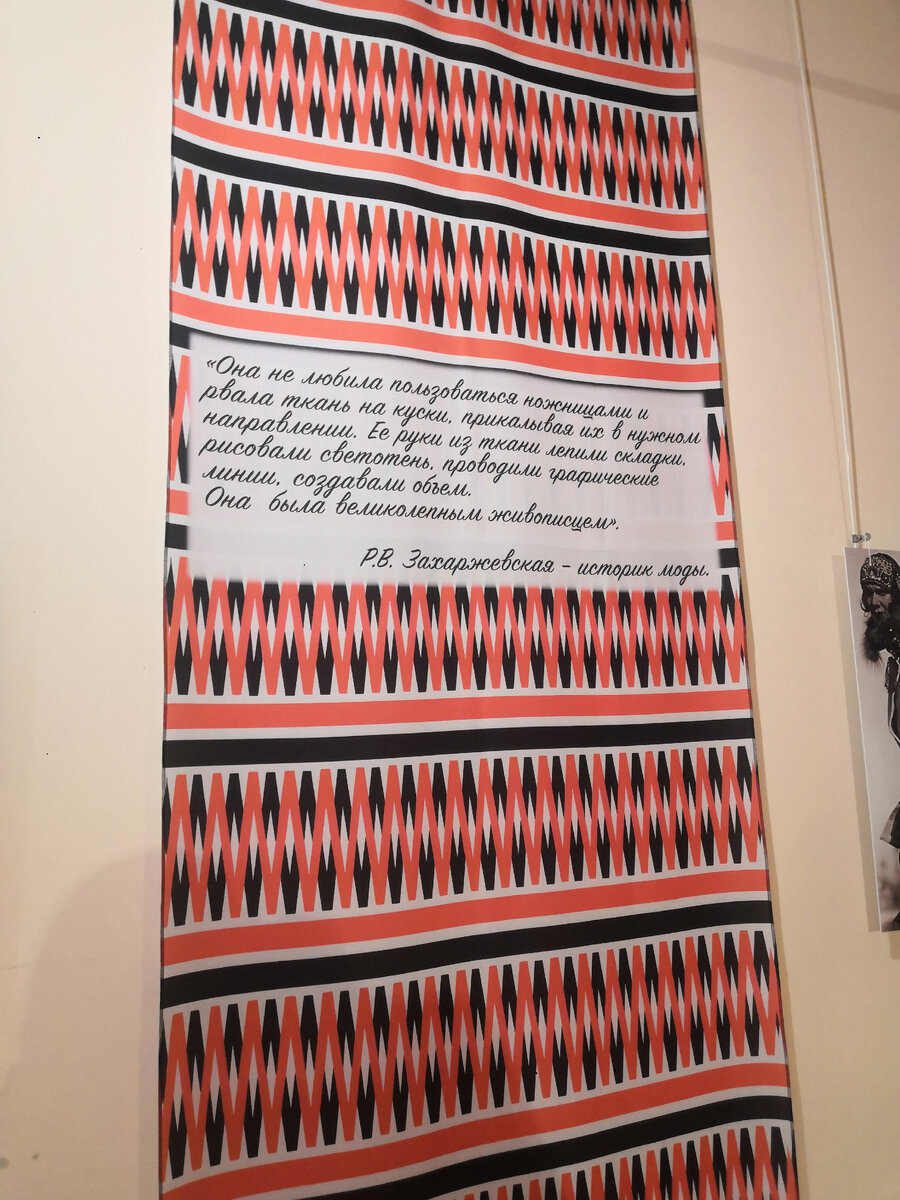 «Она не любила пользоваться ножницами и
рвала ткань на куски, прикалывая их в нужном
направлении. Ее руки из ткани лепили складки,
рисовали светотень, проводили графические
линии, создавали объем.
Она была великолепным живописцем».
Р.В. Захаржевская - историк моды.